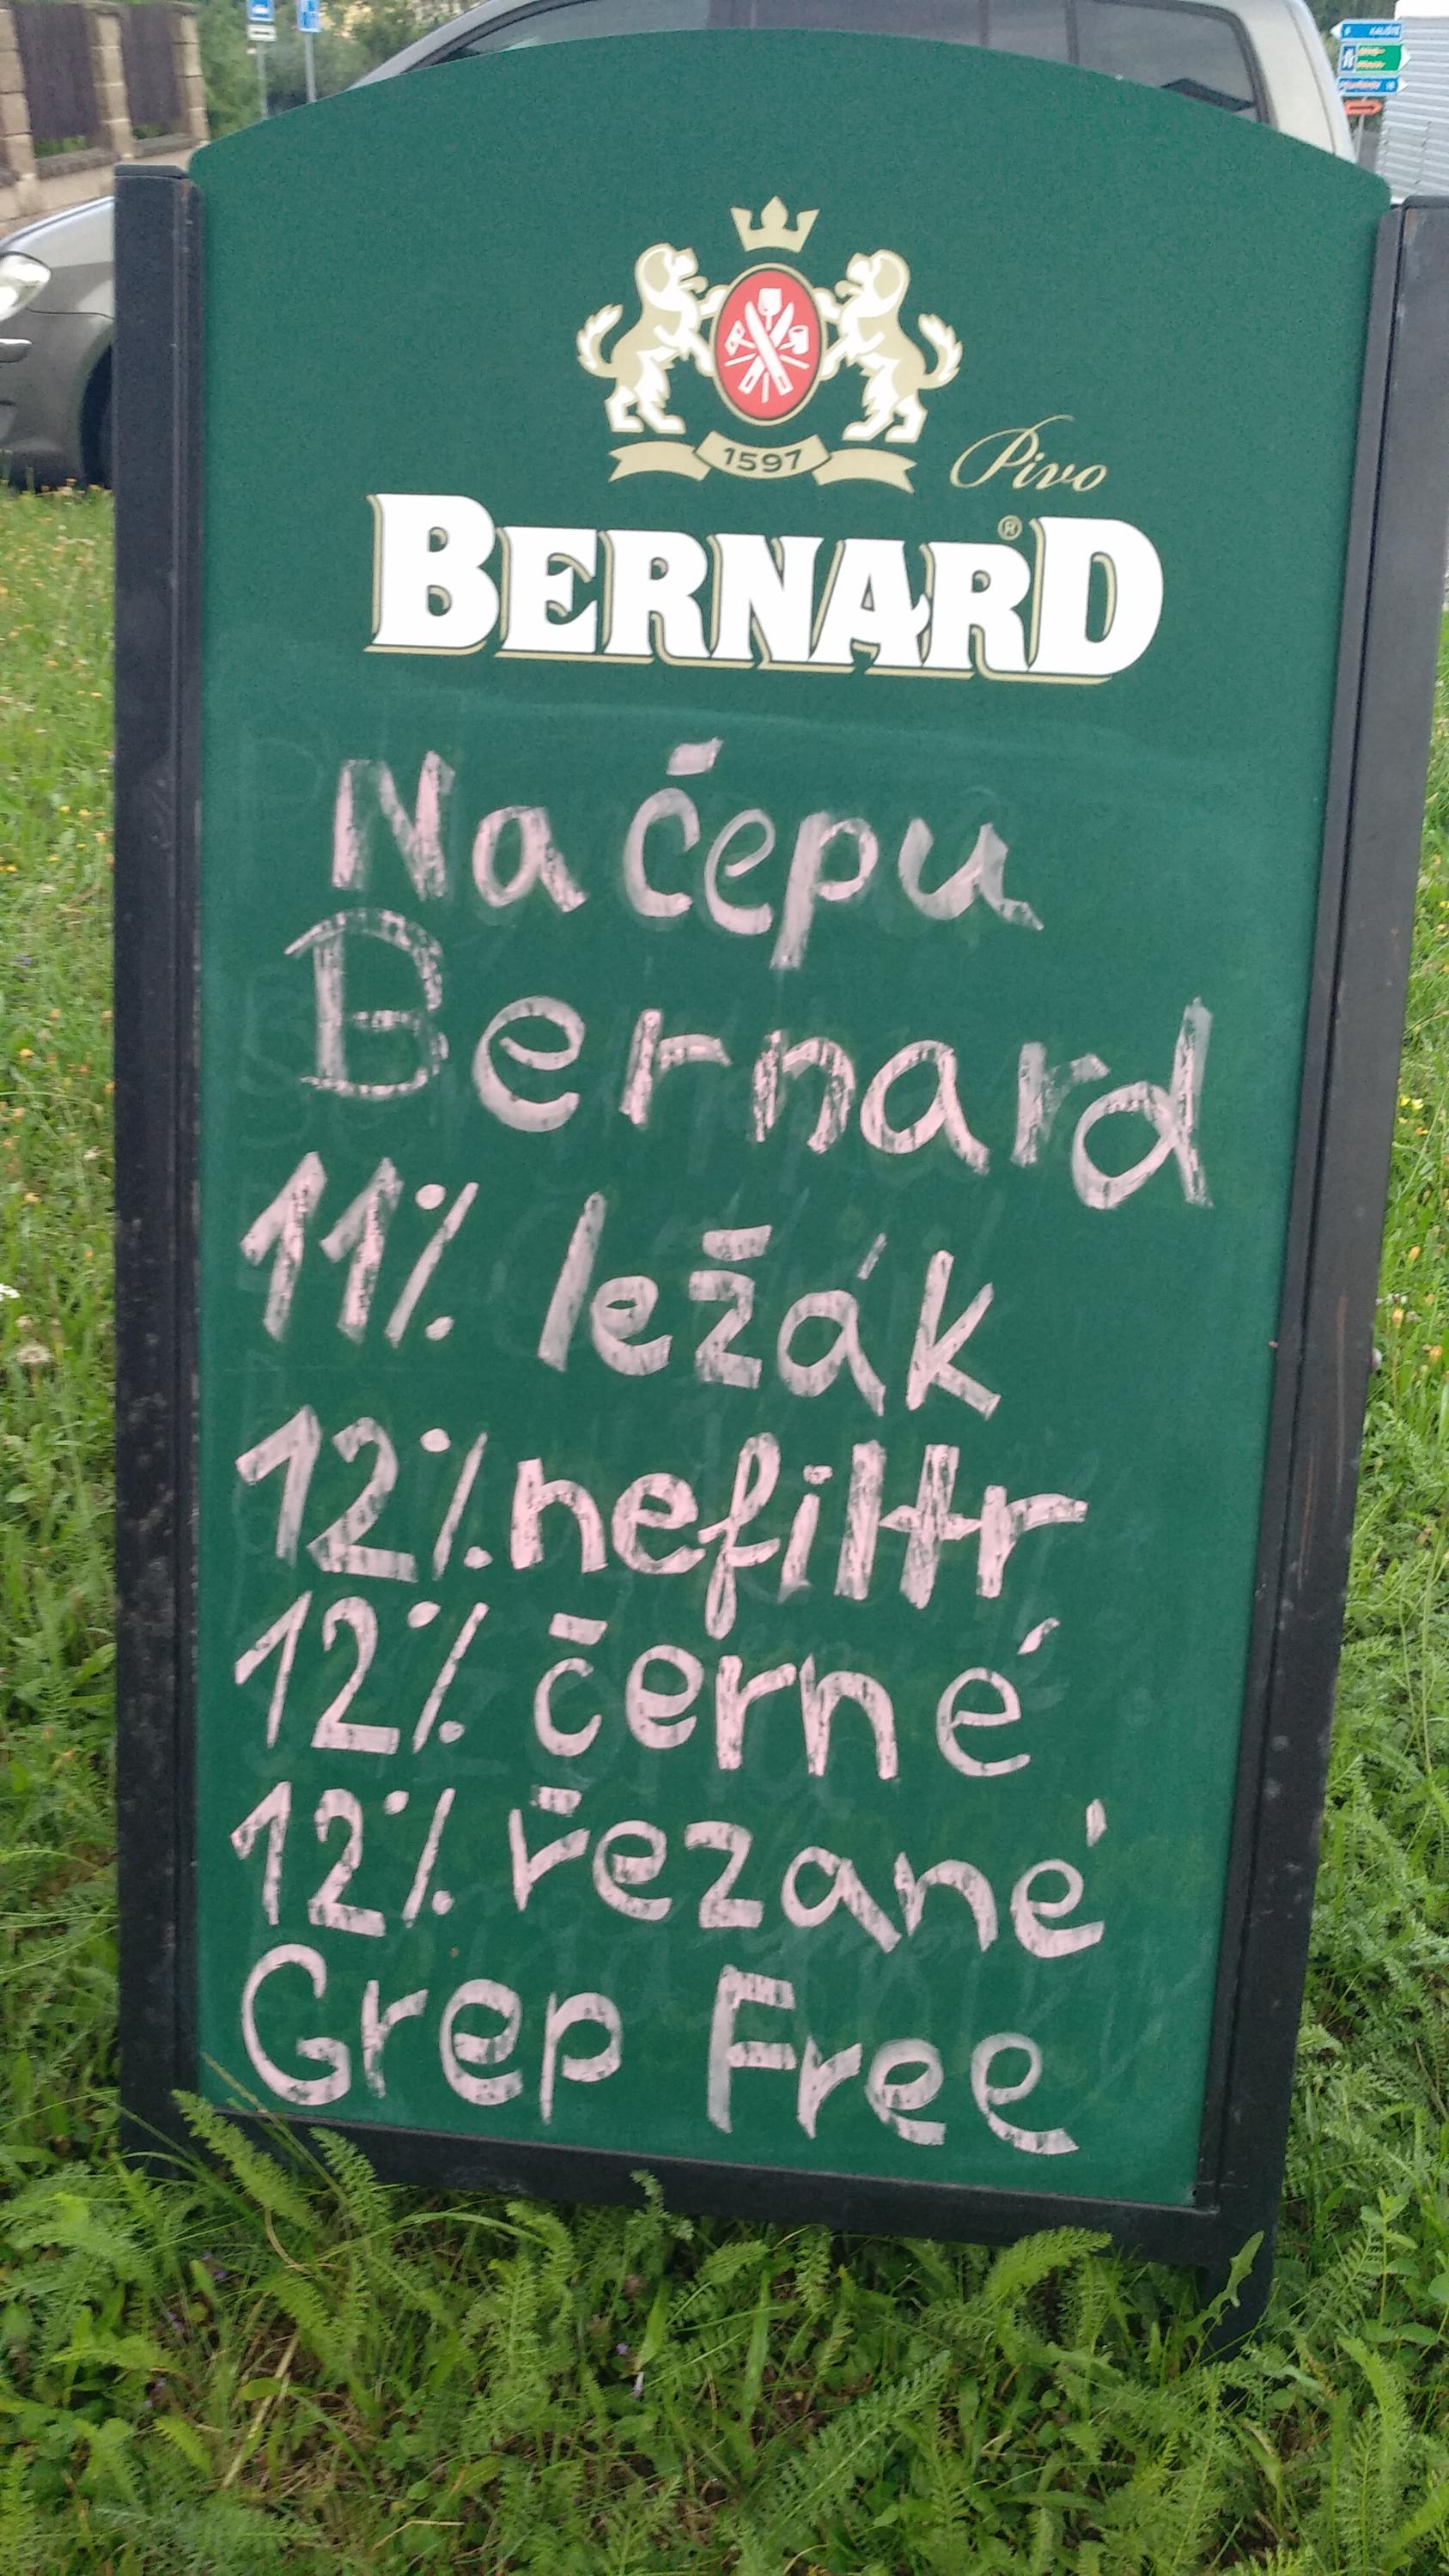 1597
Pivo
BERNARD®
Na čepu
Bernard
11% ležák
12% nefiltr
12% černé
12% řezané
Grep Free